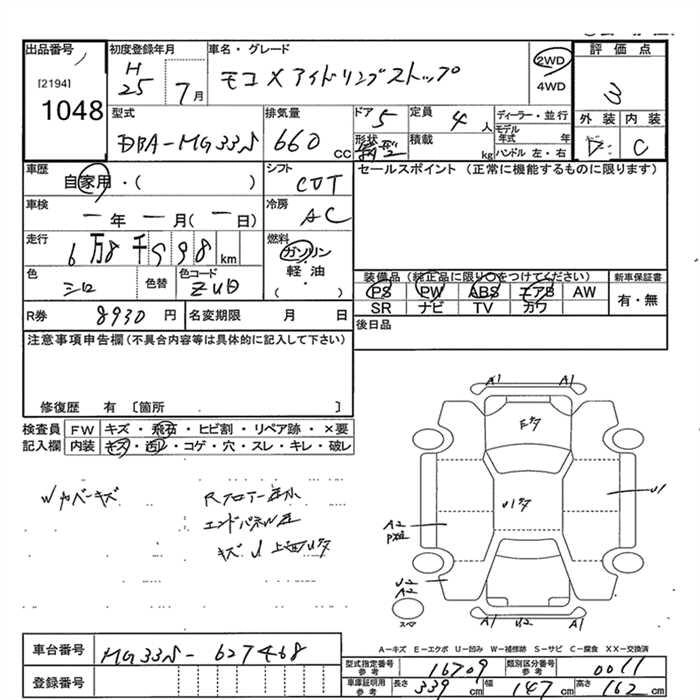 出品番号
[2194]
1048
初度登録年月
H
25 7月
車名・グレード
モコ X アイドリングストップ
2WD
4WD
評価点
3
外装 内装
D C
型式
DBA-MG33S
排気量
660 cc
ドア 5
形状
定員 4 人
積載 kg
ディーラー・並行
モデル年式 年
ハンドル 左・右
車歴
自家用・( )
シフト
CVT
セールスポイント (正常に機能するものに限ります)
車検
一年 一月(一日)
冷房
AC
走行
6万8千598km
燃料
ガソリン
軽油
( ・ )
色
シロ
色替
色コード
ZUD
装備品 (純正品に限り○をつけてください)
PS PW ABS エアB AW
SR ナビ TV カワ
新車保証書
有・無
R券 8930円
名変期限 月 日
後日品
注意事項申告欄 (不具合内容等は具体的に記入して下さい)
修復歴 有 [箇所 ]
検査員記入欄
FW キズ・飛石・ヒビ割・リペア跡・×要
内装 キズ・汚レ・コゲ・穴・スレ・キレ・破レ
Wカバーキズ
Rフロアー
エンドパネル
キズ U
A1 A1
U1
A2
U2
A2
A1 U2 A1
A-キズ E-エクボ U-凹み W-補修跡 S-サビ C-腐食 XX-交換済
車台番号
MG33S-627468
登録番号
型式指定番号 参考 16709
類別区分番号 参考 0011
車庫証明用 参考 長さ 339 cm 幅 147 cm 高さ 162 cm